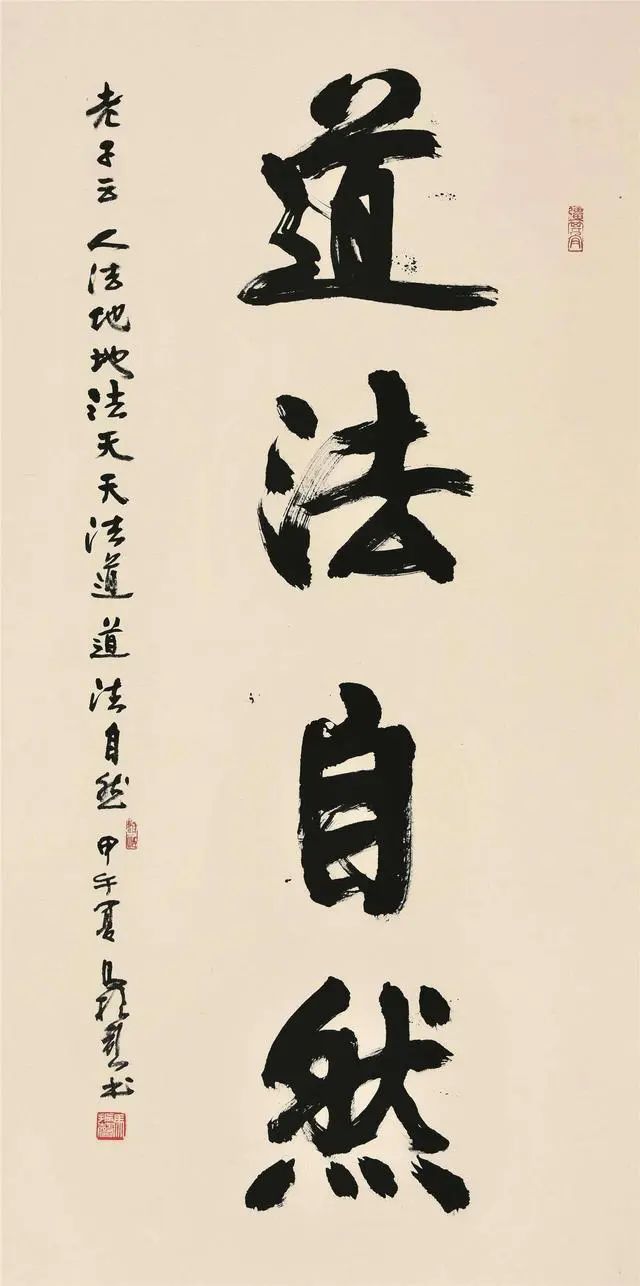 道法自然
老子云人法地地法天天法道道法自然甲午夏